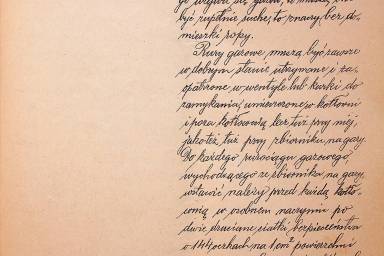 być zupełnie suche, to znaczy, bez do-
mieszki ropy.
Rury gazowe, muszą być zawsze
w dobrym stanie utrzymane i za-
opatrzone w wentyle lub kurki do
zamykania, umieszczone w kotłowni
i poza kotłownią, lecz tuż przy niej,
jakoteż, tuż przy zbiorniku na gazy.
Do każdego rurociągu gazowego,
wychodzącego ze zbiornika, na gazy,
wstawić należy przed każdą kotło-
wnią w osobnem naczyniu po
dwie druciane siatki bezpieczeństwa
o 144 oczkach na 1 cm² powierzchni